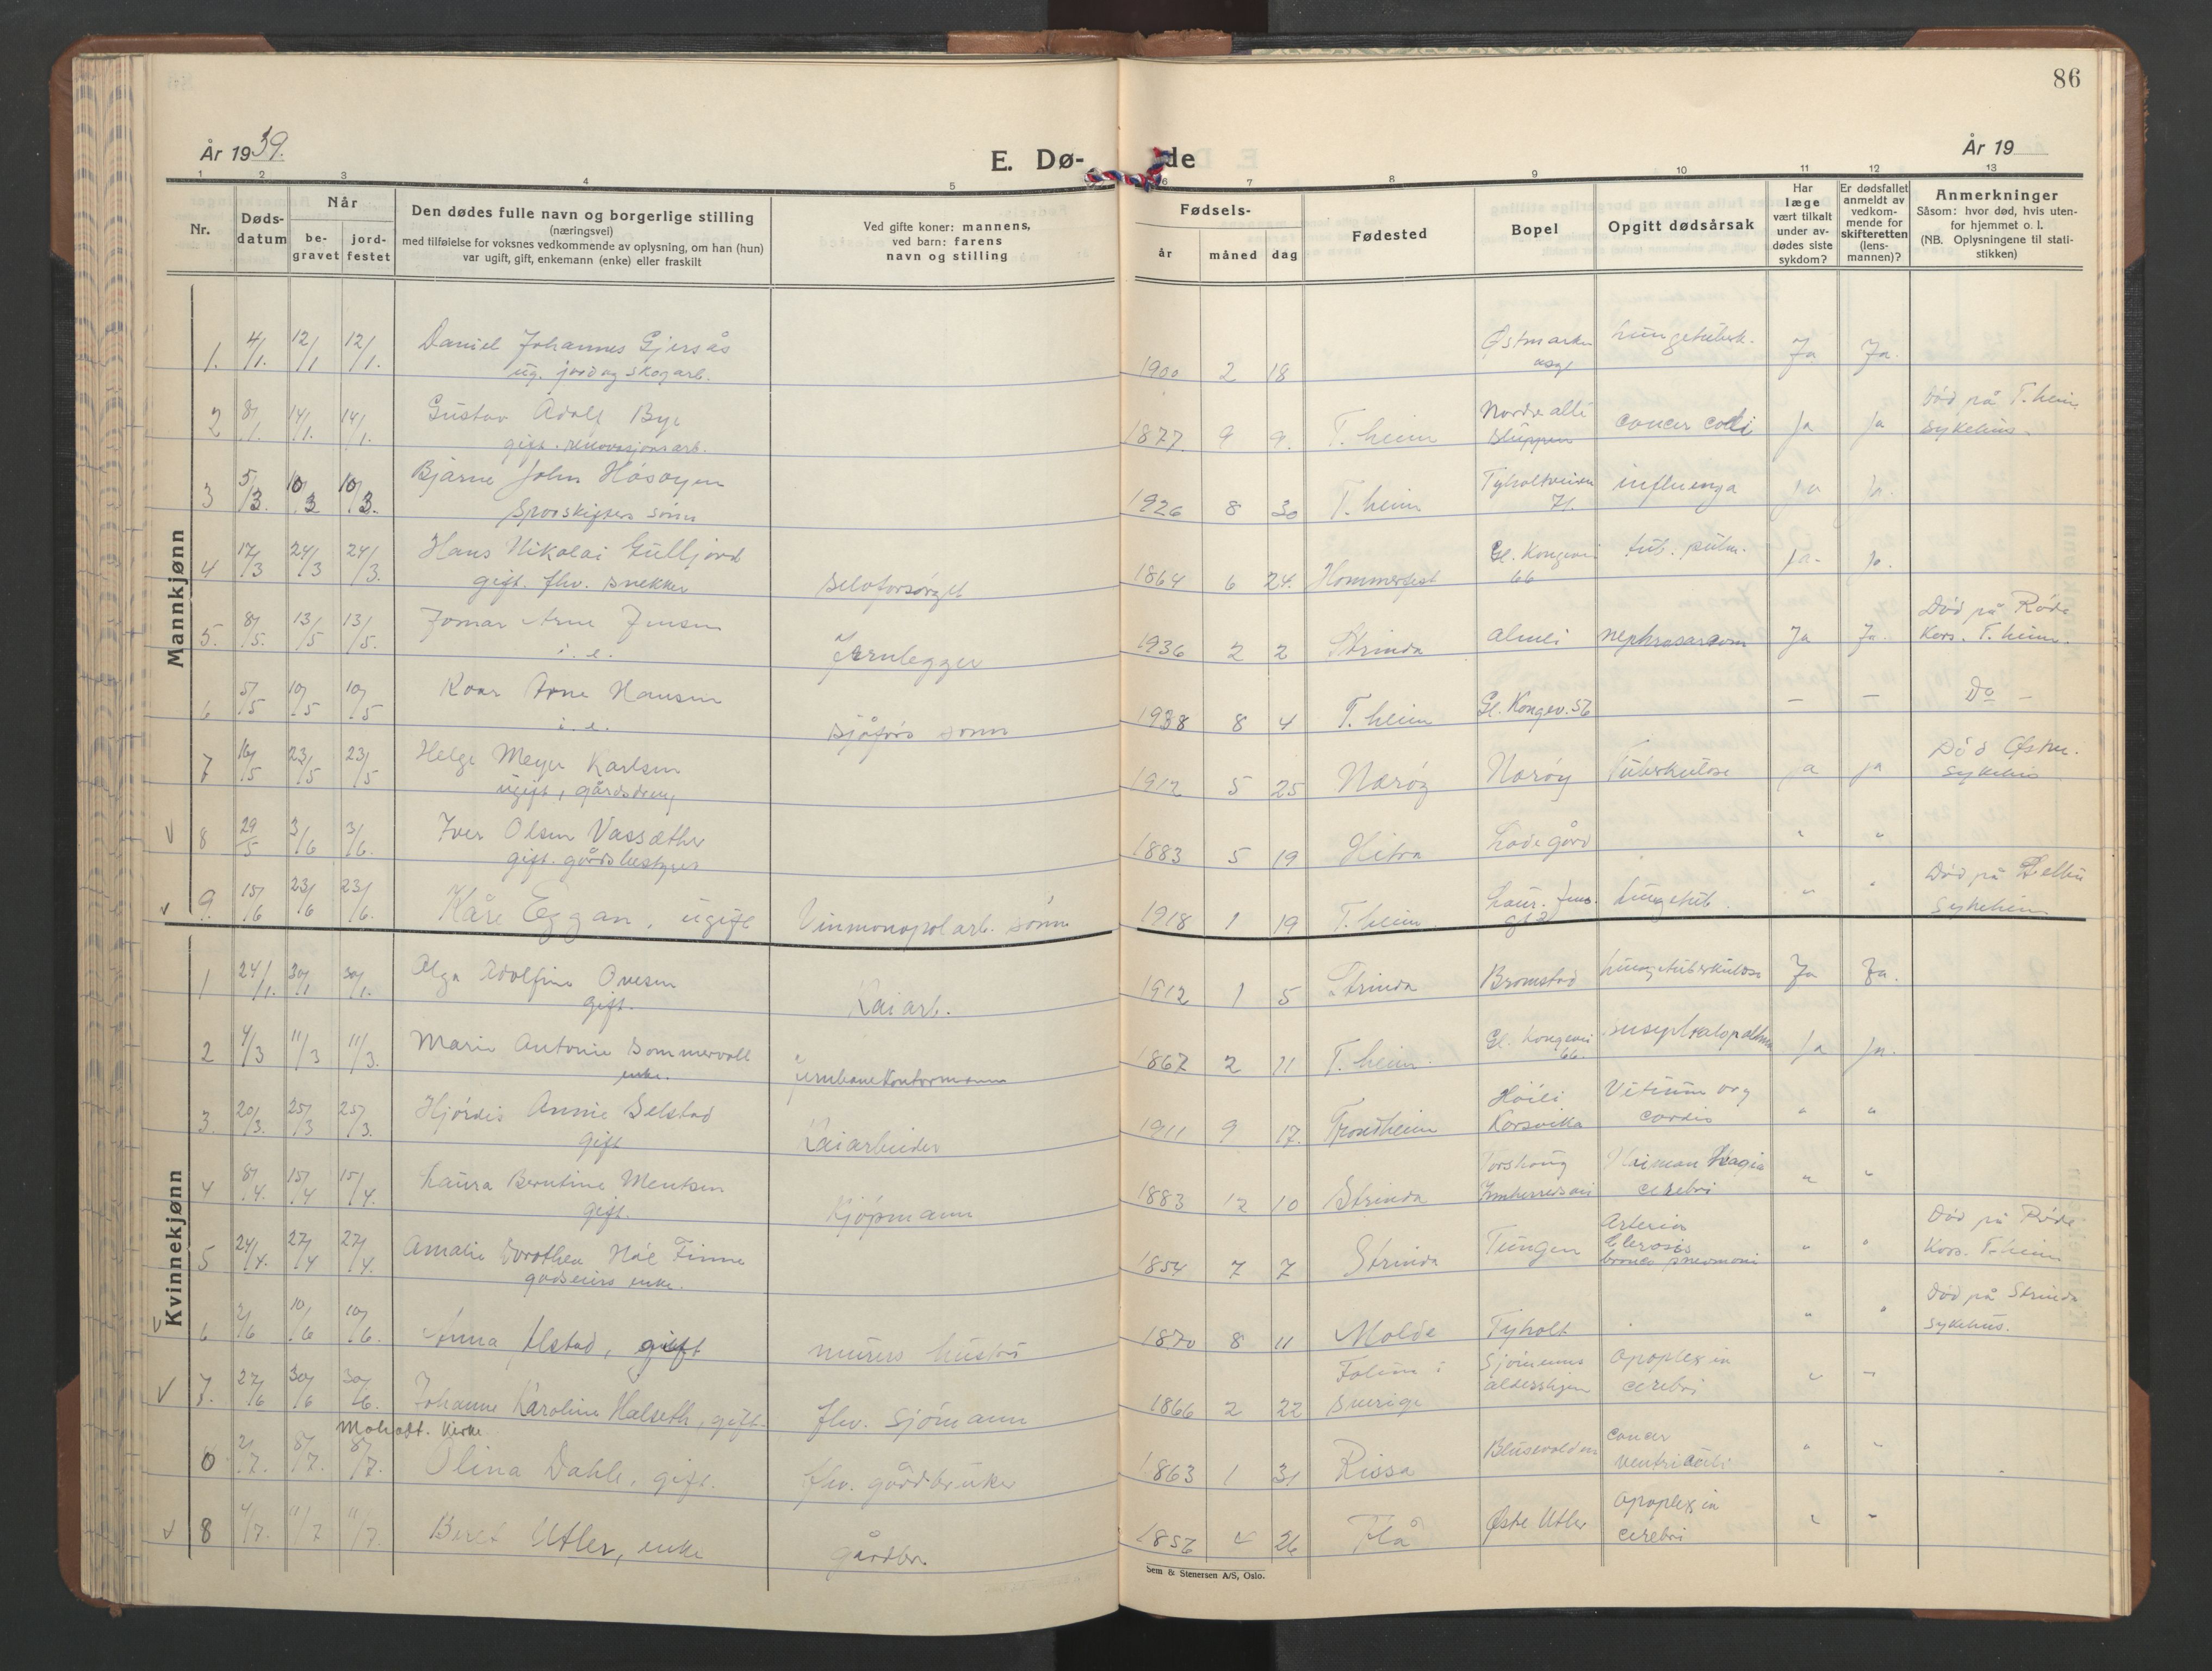 86
År 1939.
E. Dø-
de
År 19
1 2 3 4 5 6 7 8 9 10 11 12 13
Nr.
Døds-
datum
Når
be-
gravet
jord-
festet
Den dødes fulle navn og borgerlige stilling
(næringsvei)
med tilføielse for voksnes vedkommende av oplysning, om han (hun)
var ugift, gift, enkemann (enke) eller fraskilt
Ved gifte koner: mannens,
ved barn: farens
navn og stilling
Fødsels-
år måned dag
Fødested
Bopel
Opgitt dødsårsak
Har
læge
vært tilkalt
under av-
dødes siste
sykdom?
Er dødsfallet
anmeldt av
vedkom-
mende for
skifteretten
(lens-
mannen)?
Anmerkninger
Såsom: hvor død, hvis uten-
for hjemmet o. l.
(NB. Oplysningene til stati-
stikken)
Mannkjønn
1. 4/1. 12/1 12/1. Daniel Johannes Gjersås 1900 2 18 Østmarken lungetuberk. Ja Ja.
ug. jord og skogarb. asyl
2 8/1. 14/1. 14/1. Gustav Adolf Bye 1877 9 9. T.heim Nordre allé cancer coli ja ja Död på T.heim
gift. renovasjonsarb. Sluppen sykehus.
3 5/3. 10/3 10/3. Bjarne John Håsøyen 1926 8 30 T.heim Tyholtveien influenza ja
sønn 71.
4 17/3 24/3 24/3. Hans Nikolai Gulljord 1864 6 24. Hammerfest Gl. Kongevei tub. pulm. ja.
gift. fhv. snekker selvforsörget 66
5. 8/5. 13/5 13/5. Jomar Arne Jensen 1936 2 2 Strinda nephrosarcom Ja Ja. Död på Röde
i. e. Jernlegger Kors. T.heim.
6 5/5 10/5 10/5 Arne Hansen 1938 8 4 T.heim Gl. Kongev. 56 — — Do —
i. e. sjåförs sönn
7 16/5 23/5 23/5 Helge Meyer Karlsen 1912 5 25 Næröy Næröy Tuberkulose ja ja Död Östm.
ugift, gårdsdreng sykehus
V 8 29/5 3/6 3/6. Iver Olsen Vassæther 1883 5 19 Hitra Lade gård " "
gift. gårdsbestyrer
v 9. 15/6 23/6 23/6. Kåre Eggan, ugift Vinmonopolarb. sönn 1918 1 19 T.heim Laur. Jens. lungetub. " " Död på
gt 2 sykehus
Kvinnekjønn
1 24/1. 30/1 30/1. Olga Adolfine Ovesen 1912 1 5 Strinda Bromstad lungetuberkulose Ja Ja.
gift. Kaiarb.
2 4/3 11/3 11/3. Marie Antonie Sommervoll 1867 2 11 T.heim. Gl. Kongevei ja ja.
enke. jernbanekontormann 66.
3. 20/3. 25/3 25/3. Hjördis Annie Selstad 1911 9 17. Trondheim Vitium org " "
gift Kaiarbeider Korsvika cordis
4 8/4. 15/4 15/4. Laura Berntine Mentsen 1883 12 10 Strinda Torshaug " "
gift. Kjöpmann Innherredsvei cerebri
5 24/4. 27/4 27/4. Amalie Dorothea Finne 1854 7 7 Strinda Tungen Arterio " " Död på Röde
godseiers enke. sclerosis Kors. T.heim
bronco pneumoni
V 6 10/6 10/6. Anna Alstad, gift murers hustru 1870 8 11 Molde Tyholt " " Död på Strinda
sykehus.
V 7. 27/6 30/6 30/6. Johanne Karoline Halseth, gift. fhv. sjömann 1866 2 22 Sverige Sjömenns apoplexia " "
aldershjem cerebri
Moholt. Kirke
0 2/7. 8/7. 8/7. Olina Dahle, gift. fhv. gårdbruker 1863 1 31 Rissa cancer " "
ventriculi
v 8 4/7. 11/7 11/7. Beret Utler, enke gårdbr 1856 26 Flå Østre Utler apoplexia " "
cerebri
Sem & Stenersen A/S, Oslo.